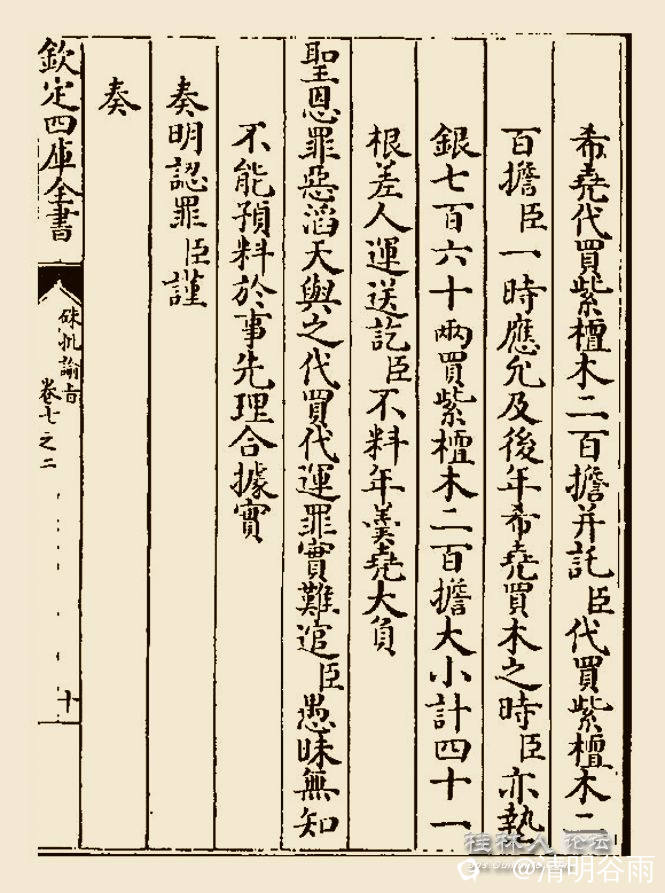 希堯代買紫檀木二百擔并託臣代買紫檀木二
百擔臣一時應允及後年希堯買木之時臣亦墊
銀七百六十兩買紫檀木二百擔大小計四十一
根差人運送訖臣不料年羹堯大負
聖恩罪惡滔天與之代買代運罪實難逭臣愚昧無知
不能預料於事先理合據實
奏明認罪臣謹
奏
欽定四庫全書
硃批諭旨
卷七之二
十
桂林人论坛
@清明谷雨